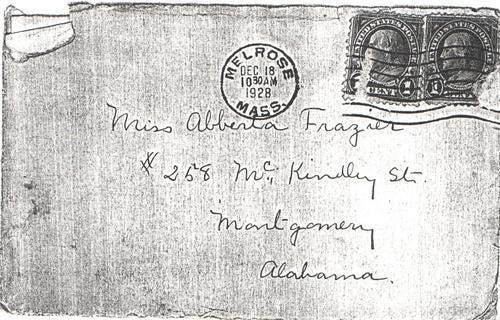 UNITED STATES POSTAGE
UNITED STATES POSTAGE
1
1
CENT
MELROSE
DEC 18
1030AM
1928
MASS.
Miss Abberta Frazier
# 258 Mc. Kindley St.
Montgomery
Alabama.